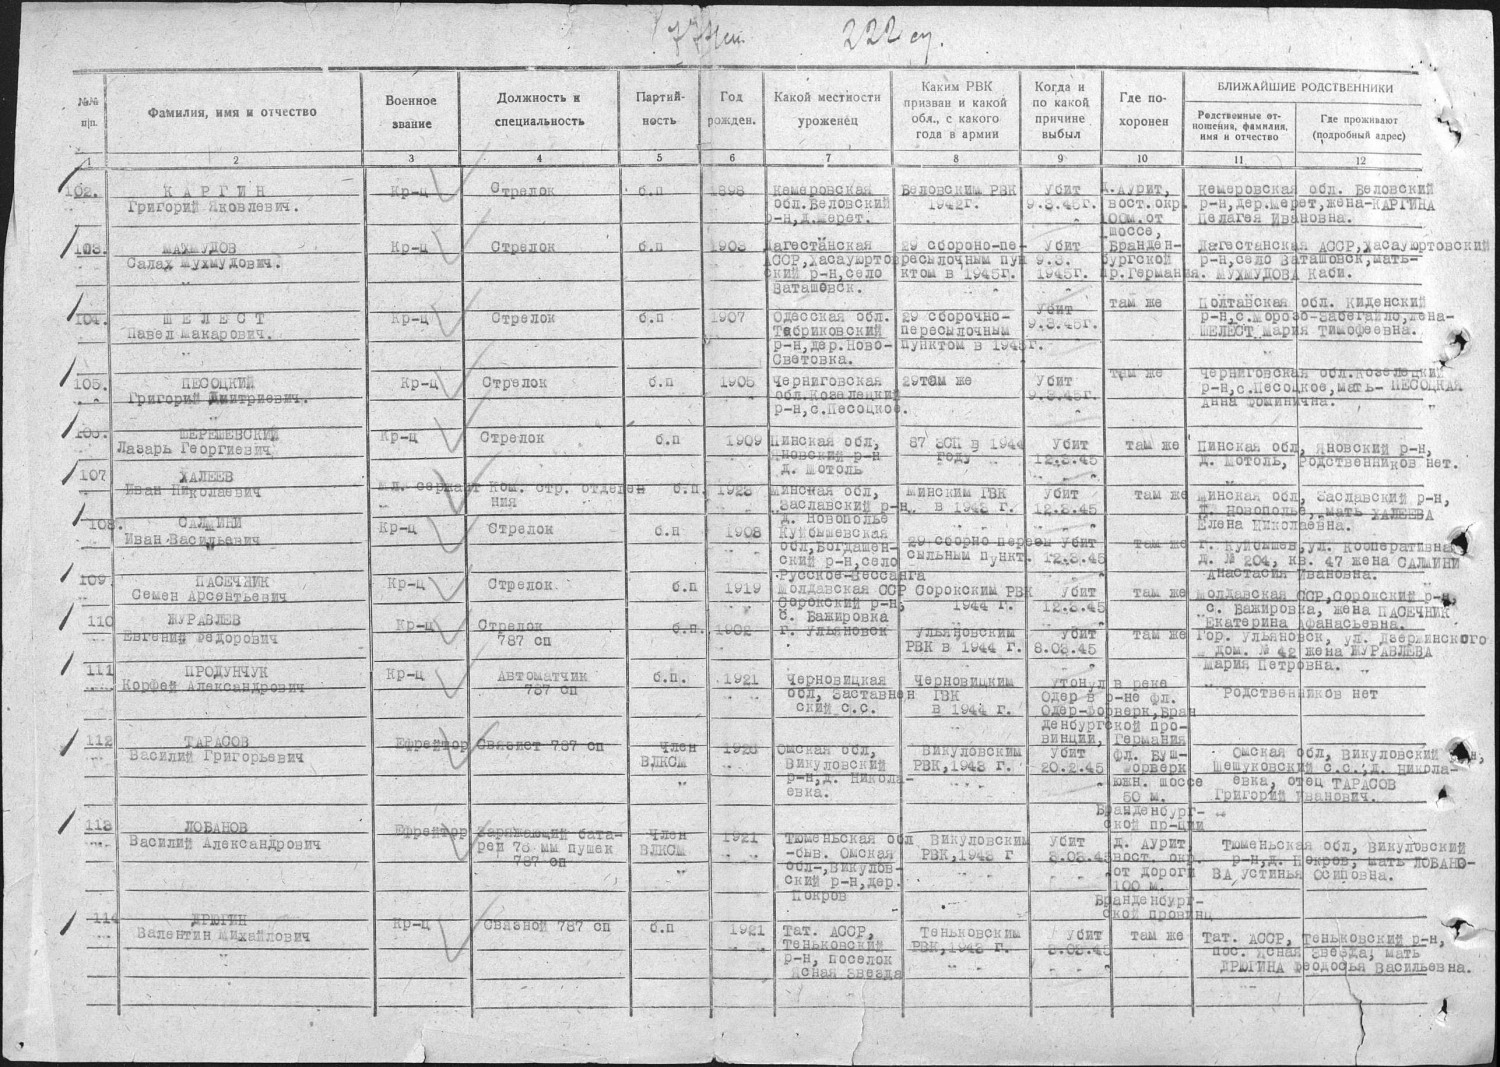 222 су.
№№ п|п.
Фамилия, имя и отчество
Военное звание
Должность и специальность
Партий-ность
Год рожден.
Какой местности уроженец
Каким РВК призван и какой обл., с какого года в армии
Когда и по какой причине выбыл
Где по-хоронен
БЛИЖАЙШИЕ РОДСТВЕННИКИ
Родственные от-ношения, фамилия, имя и отчество
Где проживают (подробный адрес)
1 2 3 4 5 6 7 8 9 10 11 12
102. КАРГИН Кр-ц Стрелок б.п 1898 Кемеровская Беловским РВК Убит д.Аурит, Кемеровская обл. Беловский
Григорий Яковлевич. обл.Беловский 1942г. 9.3.45г. вост.окр. р-н,дер.Мерет,жена-КАРГИНА
р-н,д.Мерет. 100м.от Пелагея Ивановна.
шоссе,
103. МАХМУДОВ Кр-ц Стрелок б.п 1903 Дагестанская 29 сбороно-пе- Убит Бранден- Дагестанская АССР,Хасауюртовский
Салах Мухмудович. АССР,Хасауюртов ресылочным пун 9.3. бургской р-н,село Ваташовск,мать-
ский р-н,село ктом в 1945г. 1945г. пр.Германия. МУХМУДОВА Каби.
Ваташовск.
104. ШЕЛЕСТ Кр-ц Стрелок б.п 1907 Одесская обл. 29 сборочно- Убит там же Полтавская обл. Киденский
Павел Макарович. Табриковский пересылочным 9.3.45г. р-н,с.Морозо-Забегайло,жена-
р-н,дер.Ново- пунктом в 1945г. ШЕЛЕСТ Мария Тимофеевна.
Световка.
105. ПЕСОЦКИЙ Кр-ц Стрелок б.п 1905 Черниговская 29там же Убит там же Черниговская обл.Козелецкий
Григорий Дмитриевич. обл.Козалецкий 9.3.45г. р-н,с.Песоцкое,мать- ПЕСОЦКАЯ
р-н,с.Песоцкое. Анна Фоминична.
106. ШЕРЕШЕВСКИЙ Кр-ц Стрелок б.п 1909 Пинская обл, 87 ЗСП в 1944 Убит там же Пинская обл, Яновский р-н,
Лазарь Георгиевич Яновский р-н году 12.3.45 Д. Мотоль, родственников нет.
д. Мотоль
107 ХАЛЕЕВ Мл. сержант Ком. стр. отделен б.п. 1923 Минская обл, Минским ГВК Убит там же Минская обл, Заславский р-н,
Иван Николаевич ния Заславский р-н в 1943 г. 12.3.45 Д. Новополье, мать ХАЛЕЕВА
д. Новополье Елена Николаевна.
108. САЛМИНИ Кр-ц Стрелок б.п 1908 Куйбышевская 29 сборно пересы Убит там же г. Куйбышев,ул. Кооперативная
Иван Васильевич обл,Богдашен- сыльным пункт. 12.3.45 д. № 204, кв. 47 жена САЛМИНИ
ский р-н,село Анастасия Ивановна.
Русское-Бессанга
109. ПАСЕЧНИК Кр-ц Стрелок б.п 1919 Молдавская ССР Сорокским РВК Убит там же Молдавская ССР,Сорокский р-н,
Семен Арсентьевич Сорокский р-н, 1944 г. 12.3.45 с. Бажировка, жена ПАСЕЧНИК
с. Бажировка Екатерина Афанасьевна.
110 ЖУРАВЛЕВ Кр-ц Стрелок б.п. 1902 г. Ульяновск Ульяновским Убит там же Гор. Ульяновск, ул. Дзержинского
Евгений Федорович 787 сп РВК в 1944 г. 8.03.45 дом. № 42 жена ЖУРАВЛЕВА
Мария Петровна.
111 ПРОДУНЧУК Кр-ц Автоматчик б.п. 1921 Черновицкая Черновицким Утонул в реке Родственников нет
Корфей Александрович 787 сп обл, Заставнен ГВК Одер в р-не фл.
ский с.с. в 1944 г. Одер-Форверк,Бран
денбургской про-
винции, Германия
112 ТАРАСОВ Ефрейтор Связист 787 сп Член 1926 Омская обл, Викуловским Убит фл. Буш- Омская обл, Викуловский р-н,
Василий Григорьевич ВЛКСМ Викуловский РВК,1943 г. 20.2.45 форверк Шешуковский с.с.,д. Никола-
р-н,д. Никола- южн. шоссе евка, отец ТАРАСОВ
евка. 50 м. Григорий Иванович.
Бранденбург-
ской пр-ции
113 ЛОБАНОВ Ефрейтор Заряжающий бата- Член 1921 Тюменьская обл Викуловским Убит д. Аурит, Тюменьская обл, Викуловский
Василий Александрович реи 76 мм пушек ВЛКСМ -быв. Омская РВК,1943 г 8.03.45 вост. окр. р-н,д. Покров, мать ЛОБАНО-
787 сп обл-,Викулов- от дороги ВА Устинья Осиповна.
ский р-н,дер. 100 м.
Покров Бранденбург-
ской провинц
114 ДРЮГИН Кр-ц Связной 787 сп б.п 1921 Тат. АССР, Теньковским Убит там же Тат. АССР, Теньковский р-н,
Валентин Михайлович Теньковский РВК,1943 г. 8.03.45 пос. Ясная Звезда, мать
р-н, поселок ДРЮГИНА Феодосья Васильевна.
Ясная Звезда